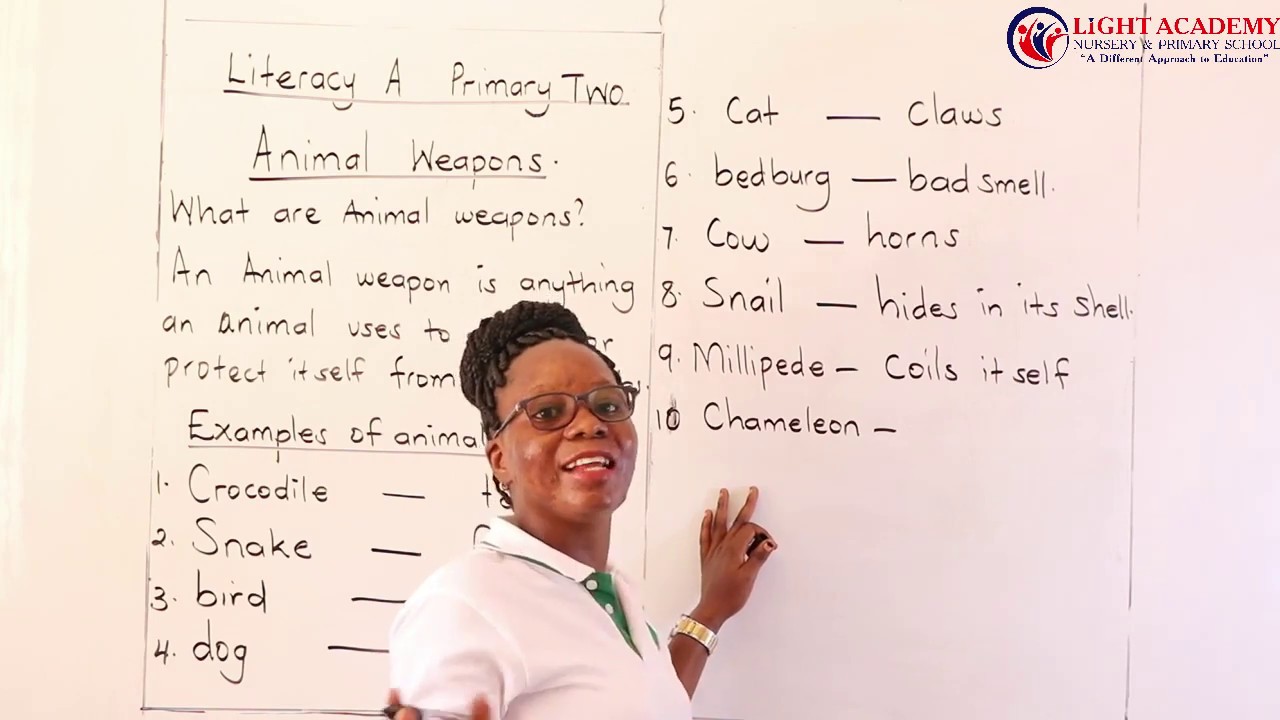 LIGHT ACADEMY
NURSERY & PRIMARY SCHOOL
"A Different Approach to Education"
Literacy A Primary Two
Animal Weapons.
What are Animal weapons?
An Animal weapon is anything
an animal uses to
protect itself from
Examples of animal
1. Crocodile —
2. Snake —
3. bird —
4. dog —
5. Cat — Claws
6. bedburg — bad smell.
7. Cow — horns
8. Snail — hides in its shell.
9. Millipede — Coils itself
10 Chameleon —